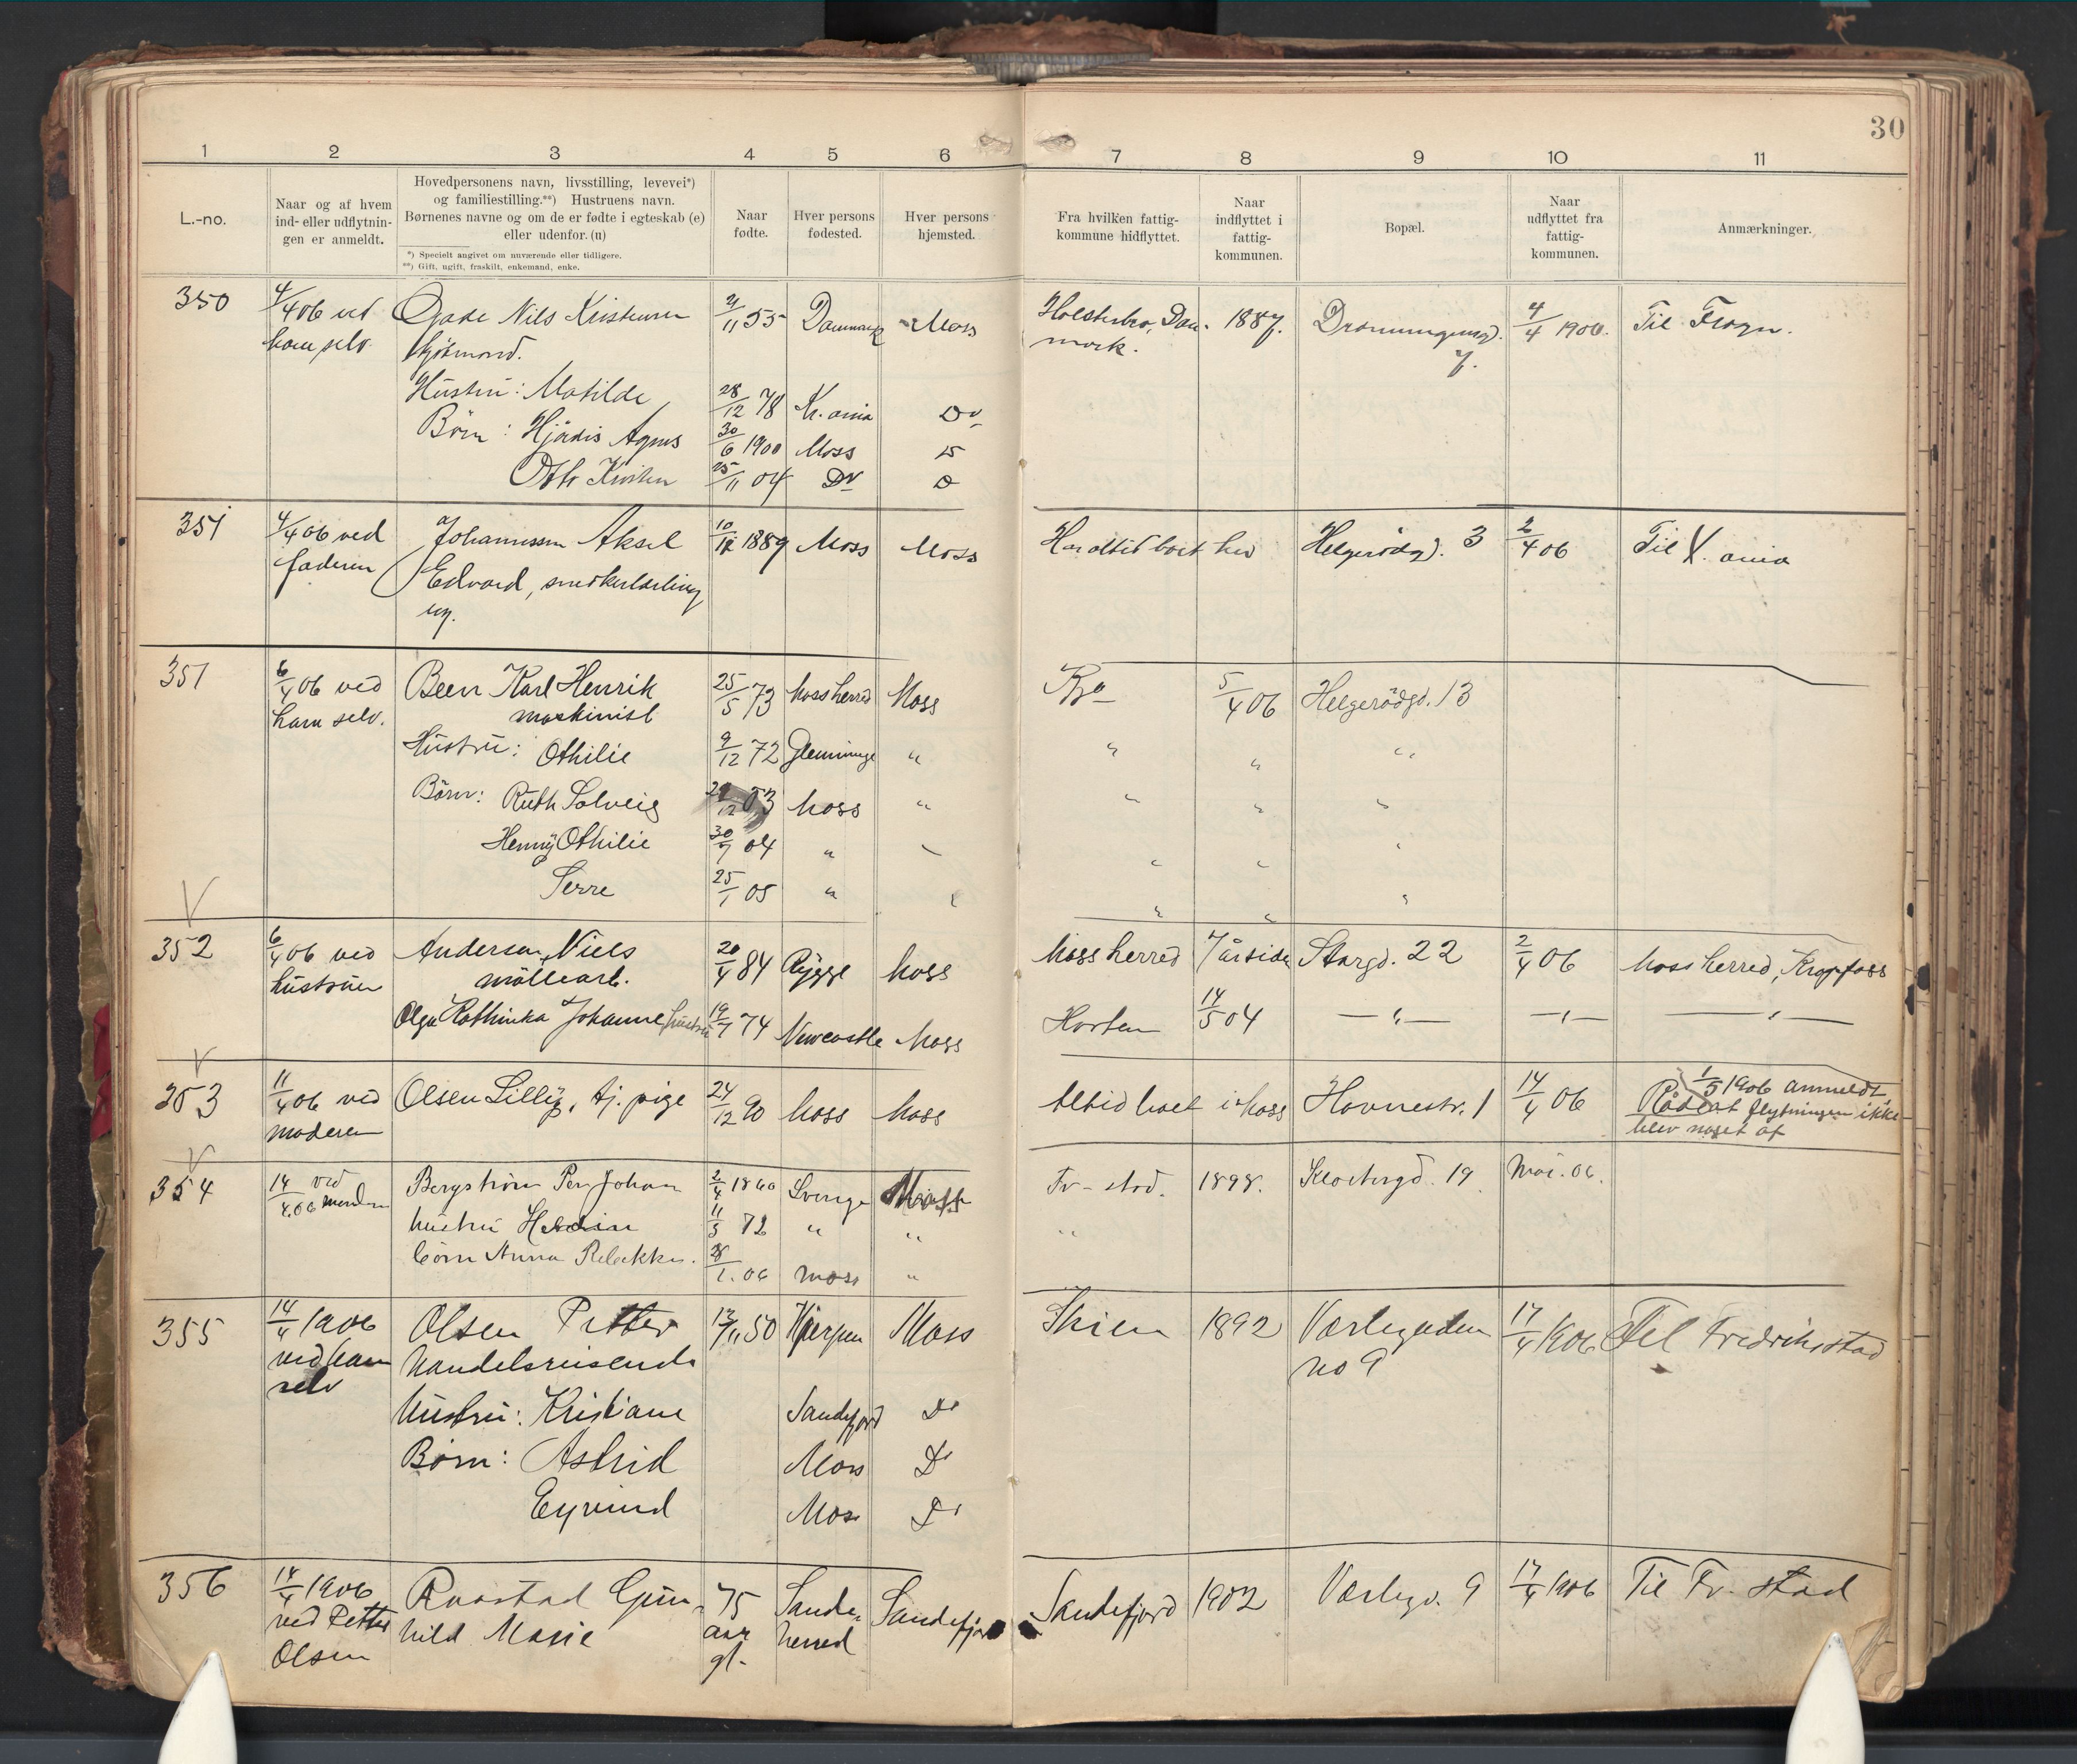 30
1 2 3 4 5 6 7 8 9 10 11
L.-no.
Naar og af hvem
ind- eller udflytnin-
gen er anmeldt.
Hovedpersonens navn, livsstilling, levevei*)
og familiestilling.**) Hustruens navn.
Børnenes navne og om de er fødte i egteskab (e)
eller udenfor. (u)
*) Specielt angivet om nuværende eller tidligere.
**) Gift, ugift, fraskilt, enkemand, enke.
Naar
fødte.
Hver persons
fødested.
Hver persons
hjemsted.
Fra hvilken fattig-
kommune hidflyttet.
Naar
indflyttet i
fattig-
kommunen.
Bopæl.
Naar
udflyttet fra
fattig-
kommunen.
Anmærkninger.
350 4/4 06 ved Nils Kristensen 55 Danmark Moss Holstebro, Dan- 1887. Dronningensgd. 4/4 1906. Til Frogn.
ham selv. mark. 7.
Hustru: Matilde 28/12 78 Kr.ania Do
Børn: Hjördis Agnes 30/6 1900 Moss D
Otto Kristen 25/11 04 Do D
351 4/4 06 ved Johannessen Aksel 1889 Moss Moss Har altid boet her Helgerödgd. 3 2/4 06 Til K.ania
faderen Edvard,
ug.
351 6/4 06 ved Been Karl Henrik 25/5 73 Moss herred Moss 5/4 06 Helgerödgd. 13
ham selv. maskinist
Hustru: Othilie 9/12 72 Glemminge " " " "
Börn: Ruth Solveig 29/12 03 Moss " " " "
Henny Othilie 30/7 04 " " " " "
25/1 05 " " " " "
V
352 6/4 06 ved Andersen, Niels 20/4 84 Rygge Moss Moss herred 7 år siden Storgd. 22 2/4 06 Moss herred, Krapfoss
hustruen möllearb.
Olga Kathinka Johanne, hustru 19/7 74 Newcastle Moss Horten 14/5 04 —"— —"— —"—
V
353 11/4 06 ved Olsen Lilly, tj. pige 24/12 90 Moss Moss Altid boet i Moss Havnestr. 1 14/4 06 1/5 1906 anmeldt
moderen at flytningen ikke
blev noget af
V
354 14/4.06 ved manden Bergström Per Johan 2/4 1860 Sverige Moss Fr-stad. 1898. Klostergd. 19 Mai. 06.
hustru 11/5 72 " " "
börn Anna Rebekka. 28/1. 06 Moss "
355 14/4 1906 Olsen Petter 13/11 50 Gjerpen Moss Skien 1892 Værlegaden 17/4 1906 Til Fredriksstad
ved ham handelsreisende no 9
selv
Hustru: Kristiane Sandefjord Do
Børn: Astrid Moss Do
Eyvind Moss Do
356 14/4 1906 Raastad Gun- 75 Sande- Sandefjord Sandefjord 1902 Værlegd. 9 17/4 1906 Til Fr-stad
ved Petter hild Marie aar herred
Olsen gl.